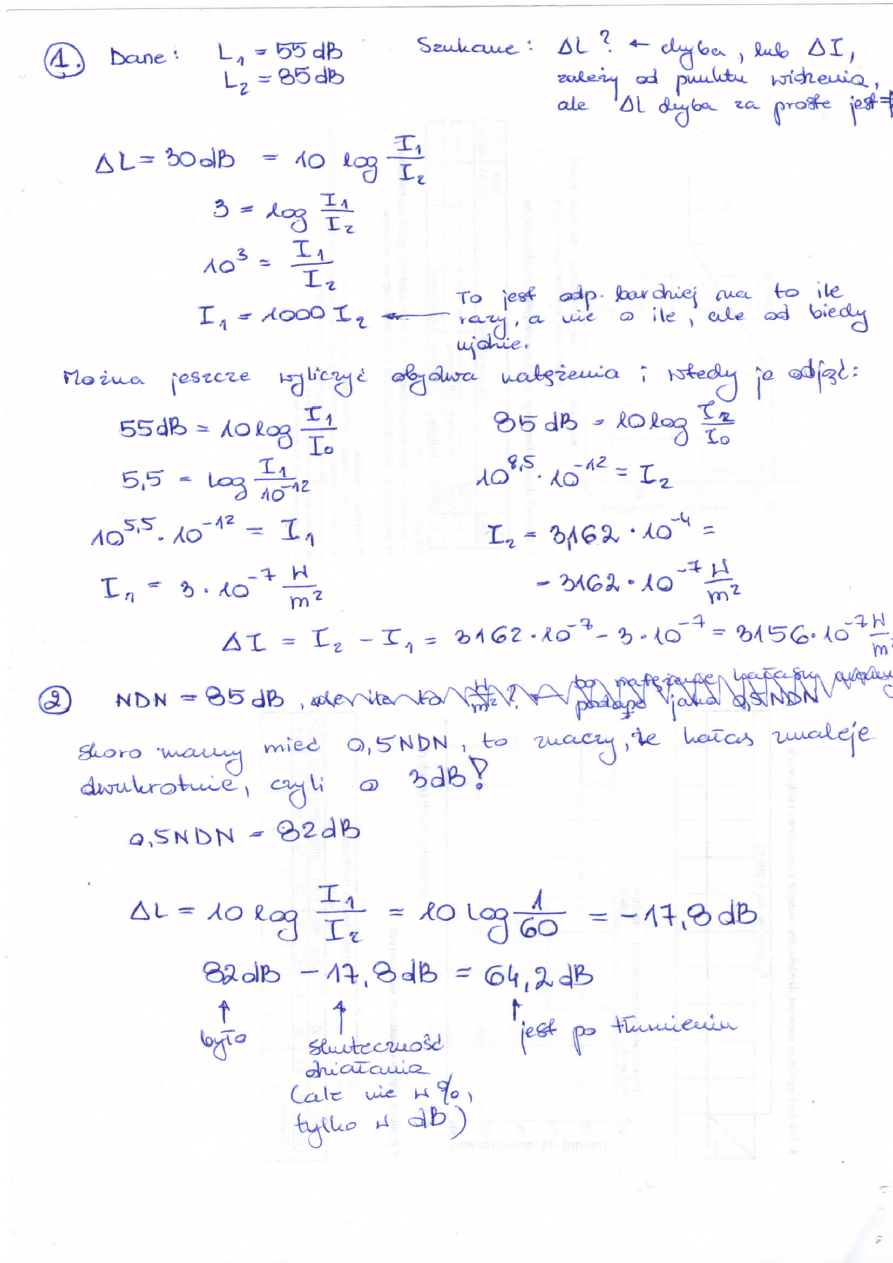 1. Dane: L₁ = 55 dB Szukane: ΔL? ← chyba, lub ΔI,
L₂ = 85 dB zależy od punktu widzenia,
ale ΔL chyba za proste jest
ΔL = 30 dB = 10 log I₁/I₂
3 = log I₁/I₂
10³ = I₁/I₂
I₁ = 1000 I₂ ← To jest odp. bardziej na to ile
razy, a nie o ile, ale od biedy
ujdzie.
Można jeszcze wyliczyć obydwa natężenia i wtedy je odjąć:
55 dB = 10 log I₁/I₀ 85 dB = 10 log I₂/I₀
5,5 = log I₁/10⁻¹² 10^8,5 · 10⁻¹² = I₂
10^5,5 · 10⁻¹² = I₁ I₂ = 3,162 · 10⁻⁴ =
I₁ = 3 · 10⁻⁷ W/m² = 3162 · 10⁻⁷ W/m²
ΔI = I₂ - I₁ = 3162·10⁻⁷ - 3·10⁻⁷ = 3156·10⁻⁷ W/m
2 NDN = 85 dB,
Skoro mamy mieć 0,5NDN, to znaczy, że hałas zmaleje
dwukrotnie, czyli o 3dB!
0,5NDN = 82dB
ΔL = 10 log I₁/I₂ = 10 log 1/60 = -17,8 dB
82dB - 17,8dB = 64,2dB
↑ było ↑ skuteczność ↑ jest po tłumieniu
działania
(ale nie w %,
tylko w dB)